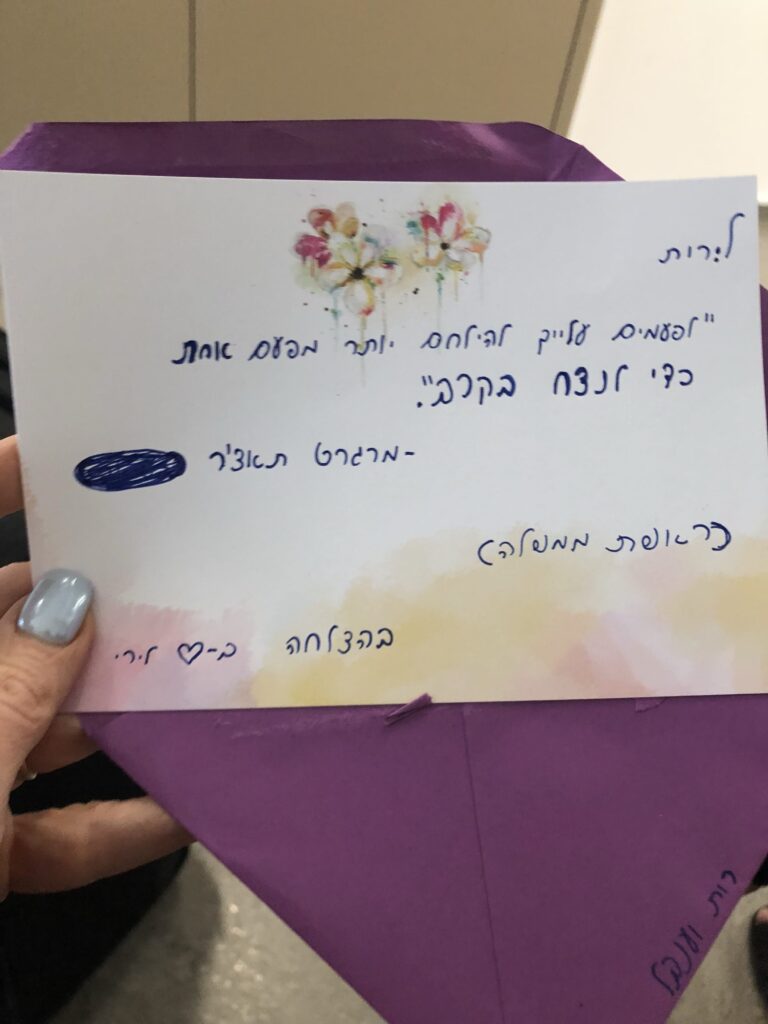 לרות
"לפעמים עלייך להילחם יותר מפעם אחת
כדי לנצח בקרב".
-מרגרט תאצ'ר
(ראשת ממשלה)
בהצלחה ב-♡ לירי
רות וענבל